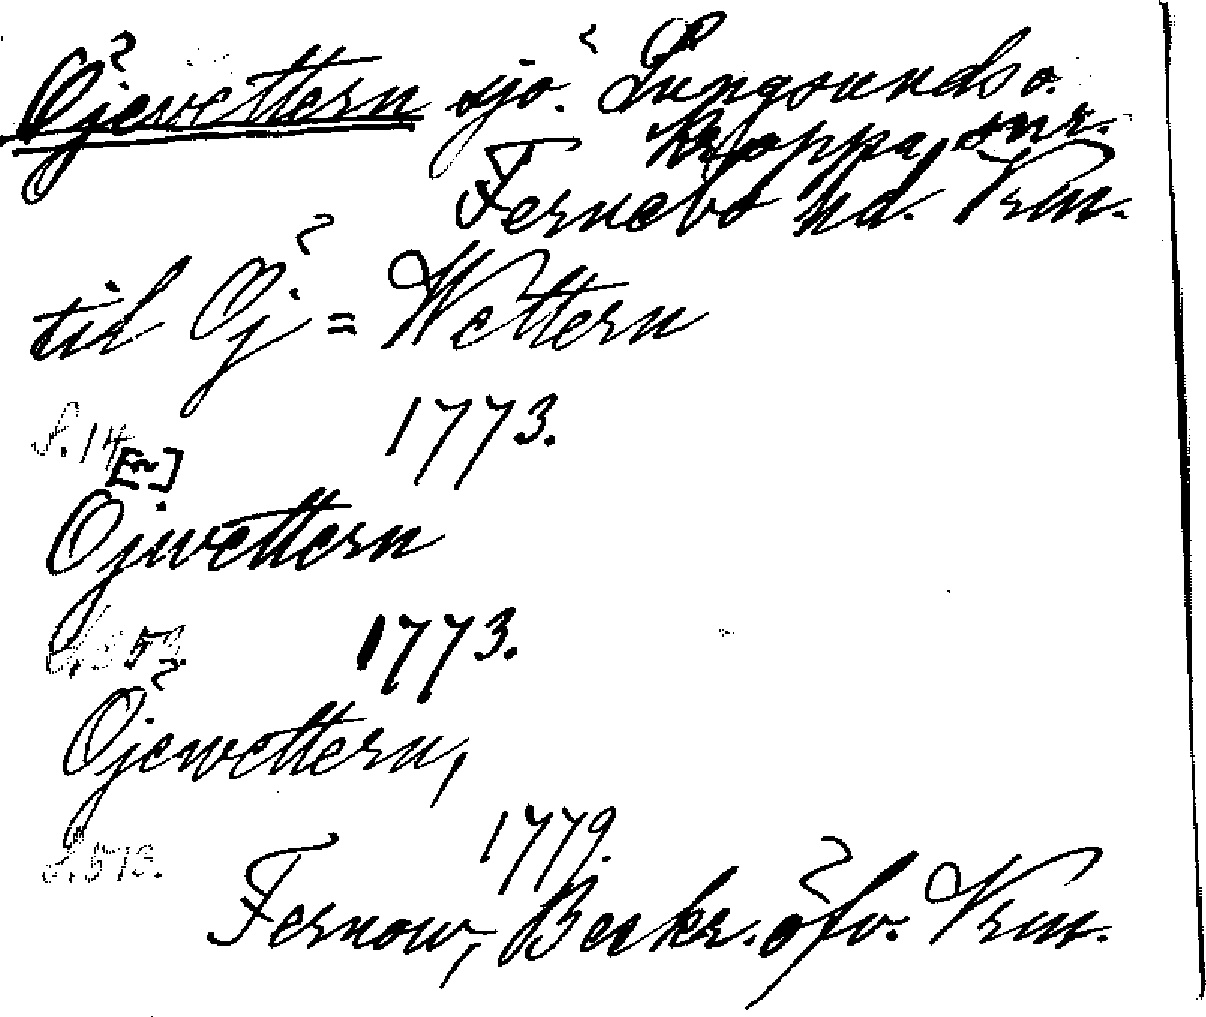 Öjevettern sjö. Lungsunds o.
Kroppa, snr.
Fernebo hd. Vrm.
till Öj = Wettern
S. 14 1773.
[?]
Ojwettern
1773.
Öjewettern,
S. 573. 1779.
Fernow, Beskr. öfv. Vrm.